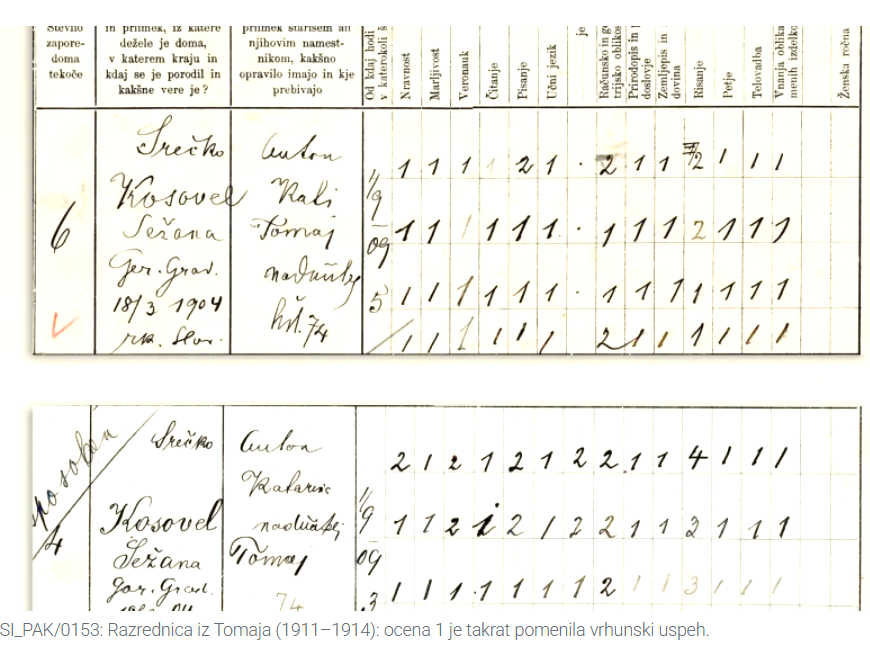 Število
zapore-
doma
tekoče
in priimek, iz katere
dežele je doma,
v katerem kraju in
kdaj se je porodil in
kakšne vere je?
priimek starišem ali
njihovim namest-
nikom, kakšno
opravilo imajo in kje
prebivajo
Od kdaj hodi
v katerokoli š
Nravnost
Marljivost
Veronauk
Čitanje
Pisanje
Učni jezik
je
Računsko in g
trijsko oblikos
Prirodopis in
doslovje
Zemljepis in
dovina
Risanje
Petje
Telovadba
Vnanja oblika
menih izdelko
Ženska ročna
Srečko Anton
1 1 1 1 2 1 · 2 1 1 2 1 1 1
Kosovel Kati 1/9
6 Sežana Tomaj 09
1 1 1 1 1 1 · 1 1 1 2 1 1 1
Gor. Grad. nadučitelj
18/3 1904 hšt. 74 5
1 1 1 1 1 1 · 1 1 1 1 1 1 1
rk. Slov.
1 1 1 1 1 1 2 1 1 1 1 1 1
sposoben
Srečko Anton
2 1 2 1 2 1 2 2 1 1 4 1 1 1
Katarina
4 Kosovel nadučitelj 1/9
1 1 2 1 2 1 2 2 1 1 3 1 1 1
Sežana Tomaj 09
gor. Grad. 74 3
1 1 1 1 1 1 1 2 1 1 3 1 1 1
SI_PAK/0153: Razrednica iz Tomaja (1911–1914): ocena 1 je takrat pomenila vrhunski uspeh.